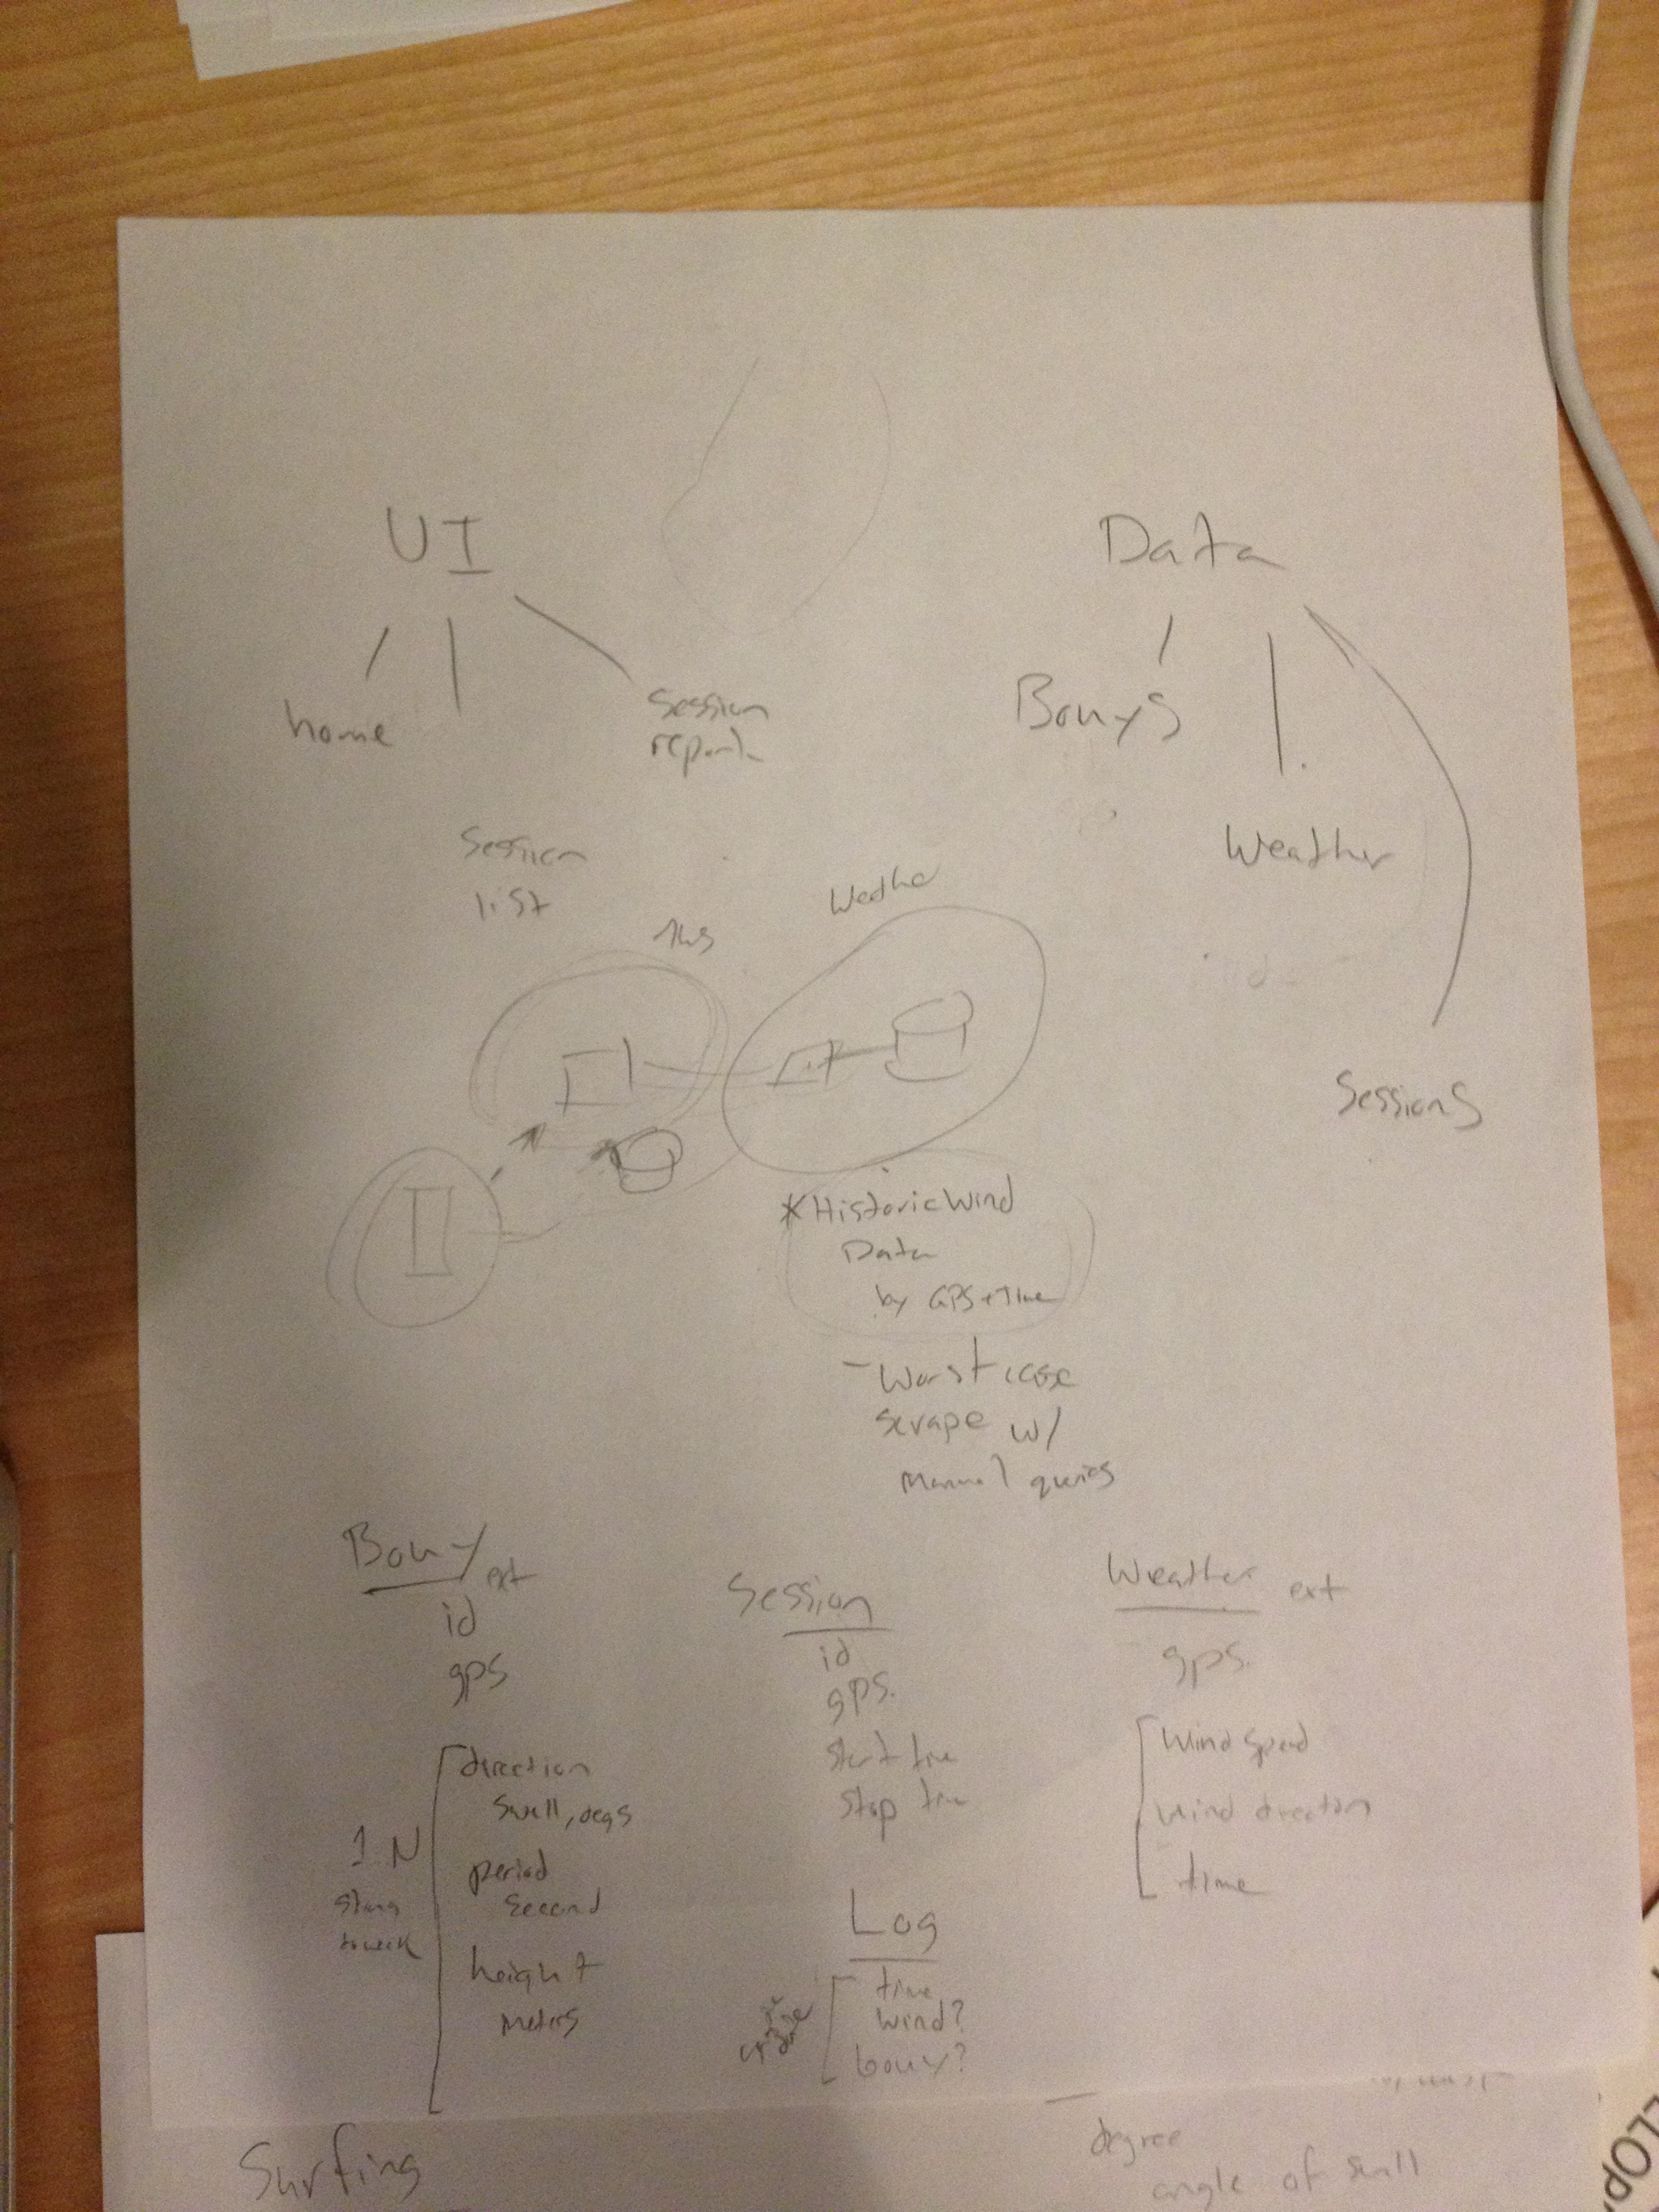 UI
Data
home
Session
report
Bouys
Session
list
Weather
Weather
Sessions
*Historic Wind
Data
by GPS + Time
- Worst case
scrape w/
Manual queries
Bouy ext
id
gps
direction
Swell, degs
1 N
period
second
height
meters
Session
id
gps.
start time
stop time
Log
time
wind?
bouy?
Weather ext
gps.
Wind Speed
Wind direction
time
Surfing
degree
angle of swell